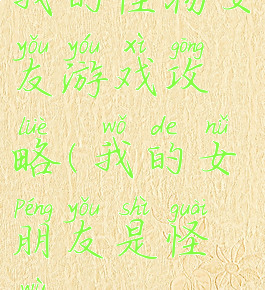 我的怪物女
yǒu yóu xì gōng
友游戏攻
lüè wǒ de nǚ
略(我的女
Péng yǒu shì guài
朋友是怪
wù